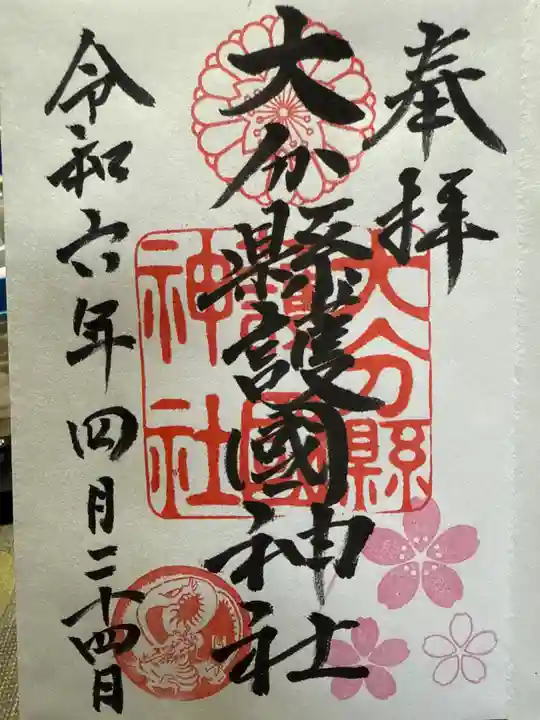 奉拝
大分縣護國神社
大分縣
護國
神社
令和六年四月二十四日